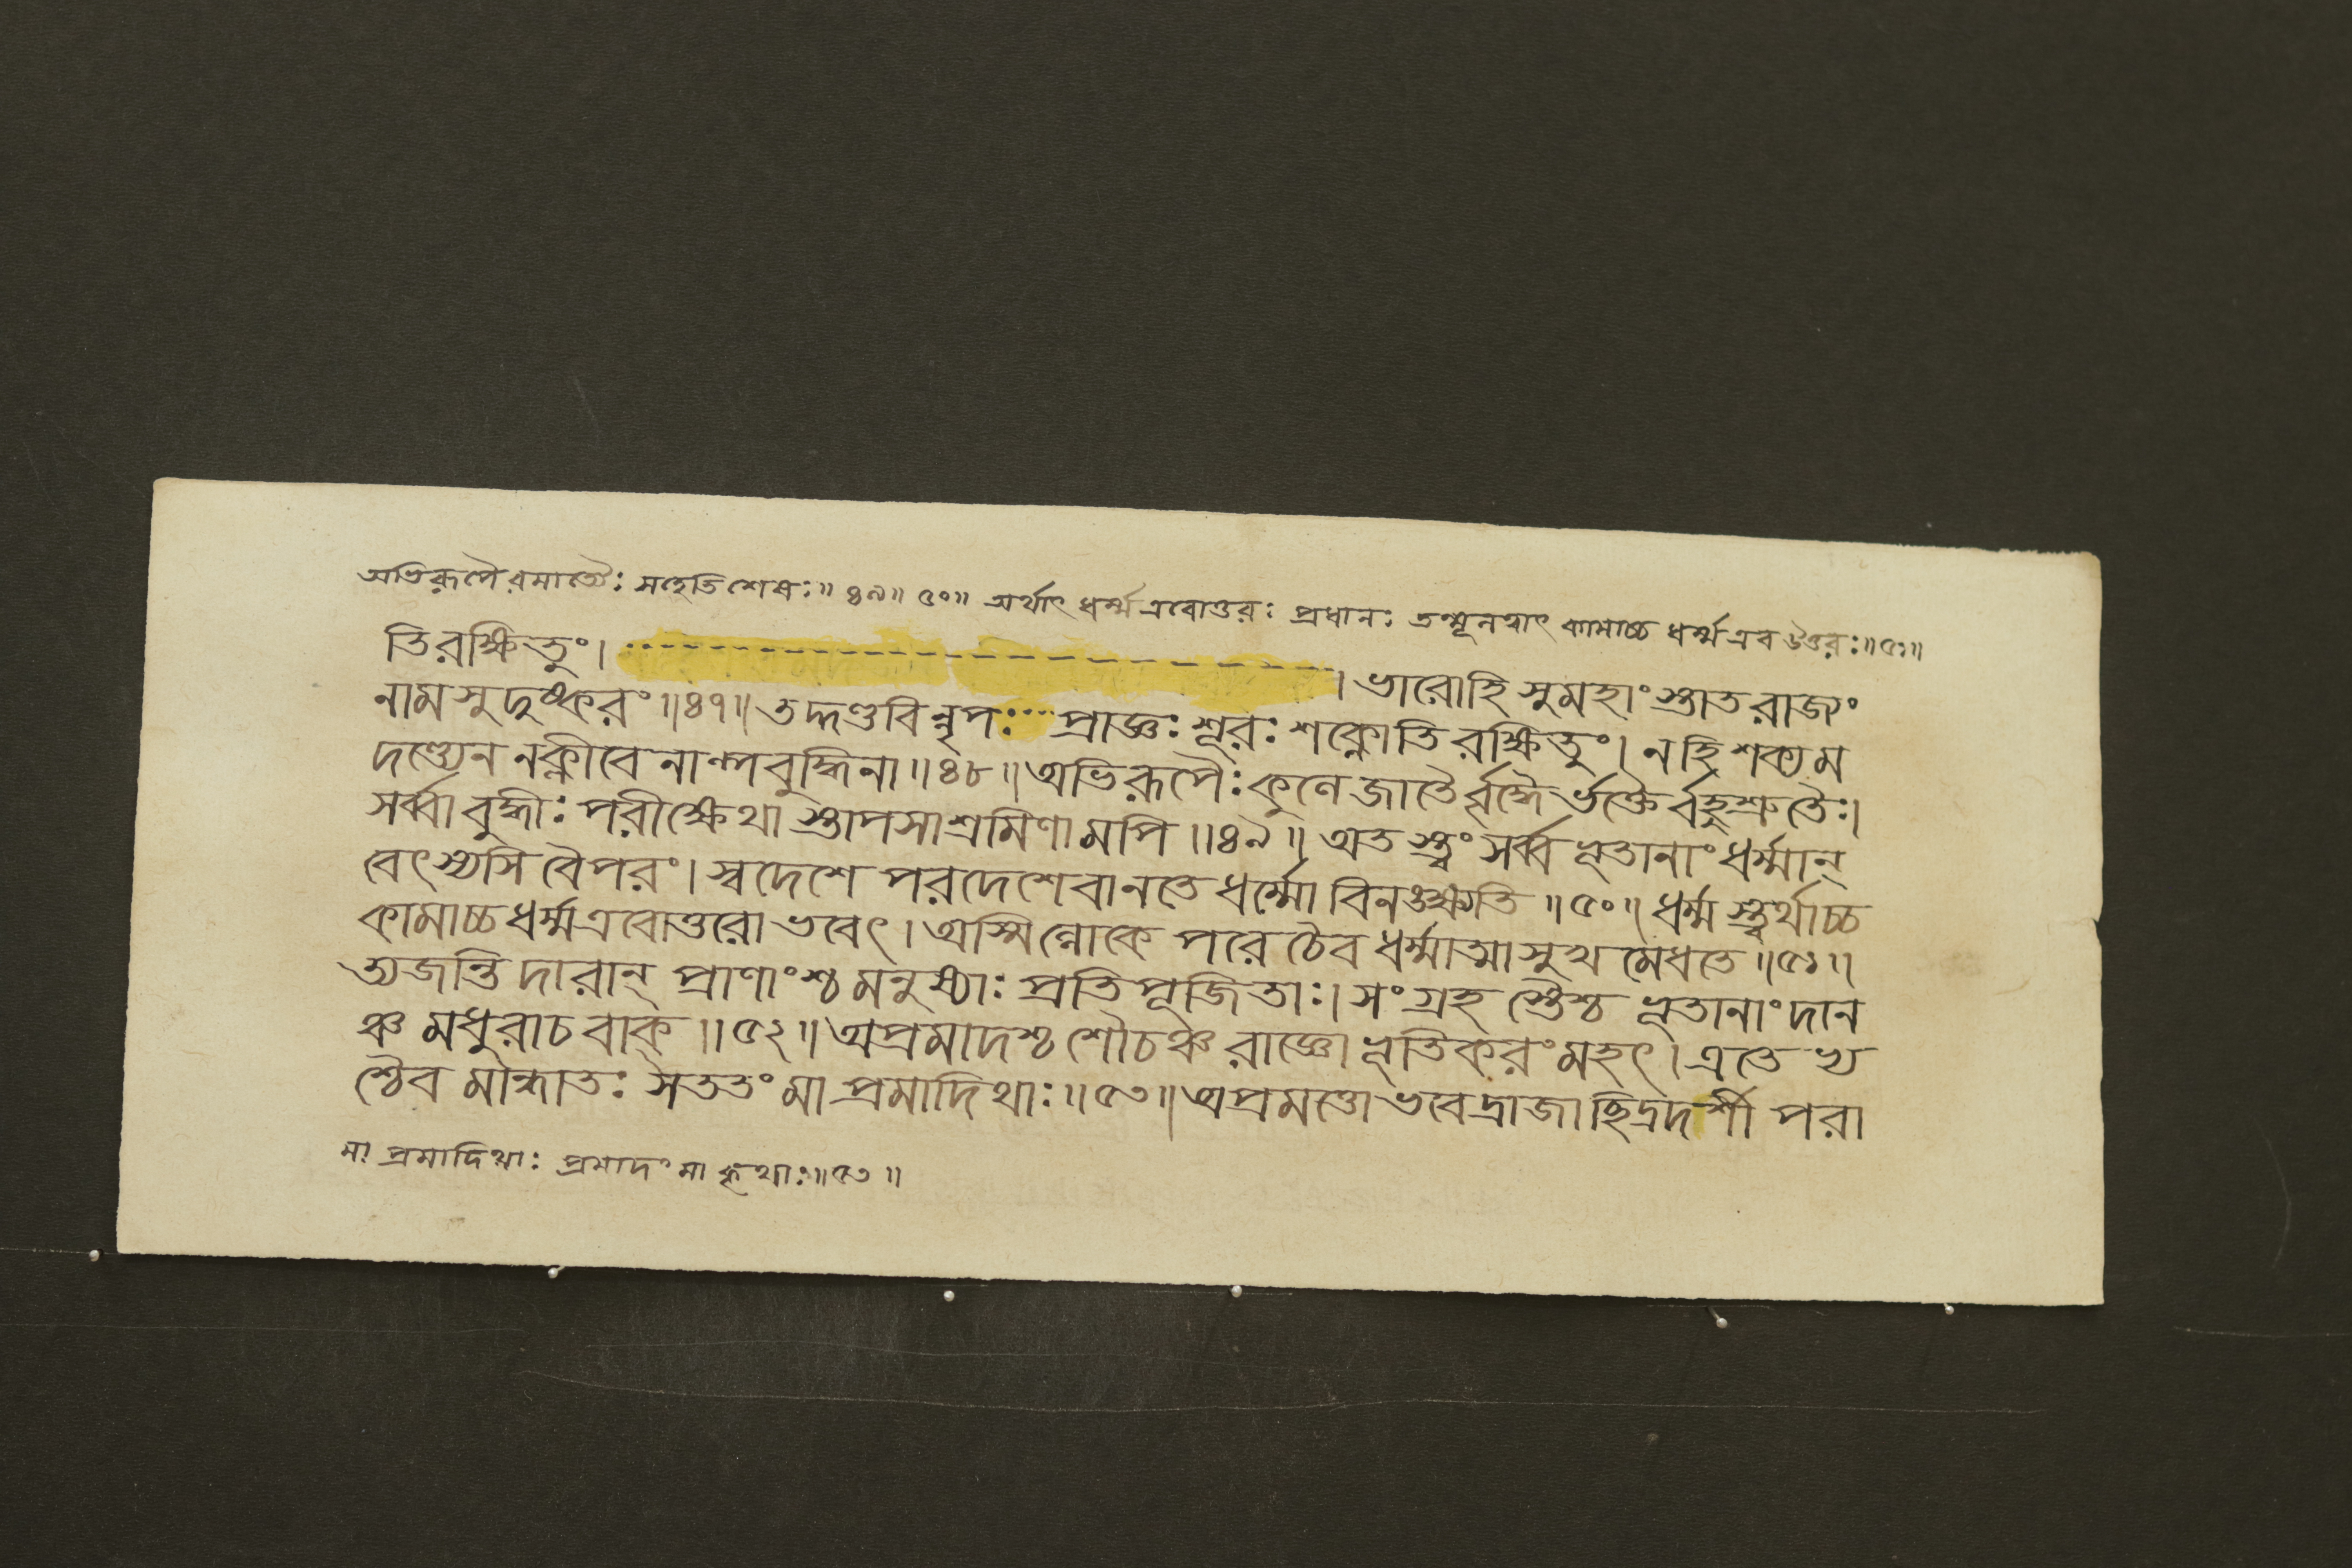 অভিরূপৈরমাত্যৈঃ সহেতিশেষঃ॥ ৪৯॥ ৫০॥ অর্থাৎ ধর্ম্মএবোত্তরঃ প্রধানং তন্মূলত্বাৎ কামাচ্চ ধর্ম্মএব উত্তরঃ॥৫১॥
তিরক্ষিতুং। । ভারোহি সুমহাংস্তাত রাজ্যং
নাম সুদুষ্করং॥৪৭॥ তদ্দণ্ডবিন্নৃপঃ প্রাজ্ঞঃ শূরঃ শক্নোতি রক্ষিতুং। নহি শক্যম
দণ্ড্যেন নক্লীবেনাল্পবুদ্ধিনা॥৪৮॥ অভিরূপৈঃ কুলেজাতৈর্ব্বৃদ্ধৈর্ভক্তৈর্বহুশ্রুতৈঃ।
সর্ব্বাবুদ্ধীঃ পরীক্ষেথাস্তাপসাশ্রমিণামপি॥৪৯॥ অতস্ত্বং সর্ব্বভূতানাং ধর্ম্মান্
বেৎস্যসি বৈপরং। স্বদেশে পরদেশেবানতে ধর্ম্মো বিনঙ্ক্ষ্যতি॥৫০॥ ধর্ম্মস্ত্বর্থাচ্চ
কামাচ্চধর্ম্মএবোত্তরোভবেৎ। অস্মিল্লোকে পরে চৈব ধর্ম্মাত্মাসুখমেধতে॥৫১॥
ত্যজন্তি দারান্ প্রাণাংশ্চমনুষ্যাঃ প্রতিপূজিতাঃ। সংগ্রহস্তৈশ্চ ভূতানাং দান
ঞ্চ মধুরাচ বাক্॥৫২॥ অপ্রমাদশ্চ শৌচঞ্চ রাজ্ঞো ভূতিকরং মহৎ। এতেভ্য
শ্চৈব মান্ধাতঃ সততং মাপ্রমাদিথাঃ॥৫৩॥ অপ্রমত্তোভবেদ্রাজা ছিদ্রদর্শী পরা
মা প্রমাদিথাঃ প্রমাদং মা কৃথাঃ॥৫৩॥